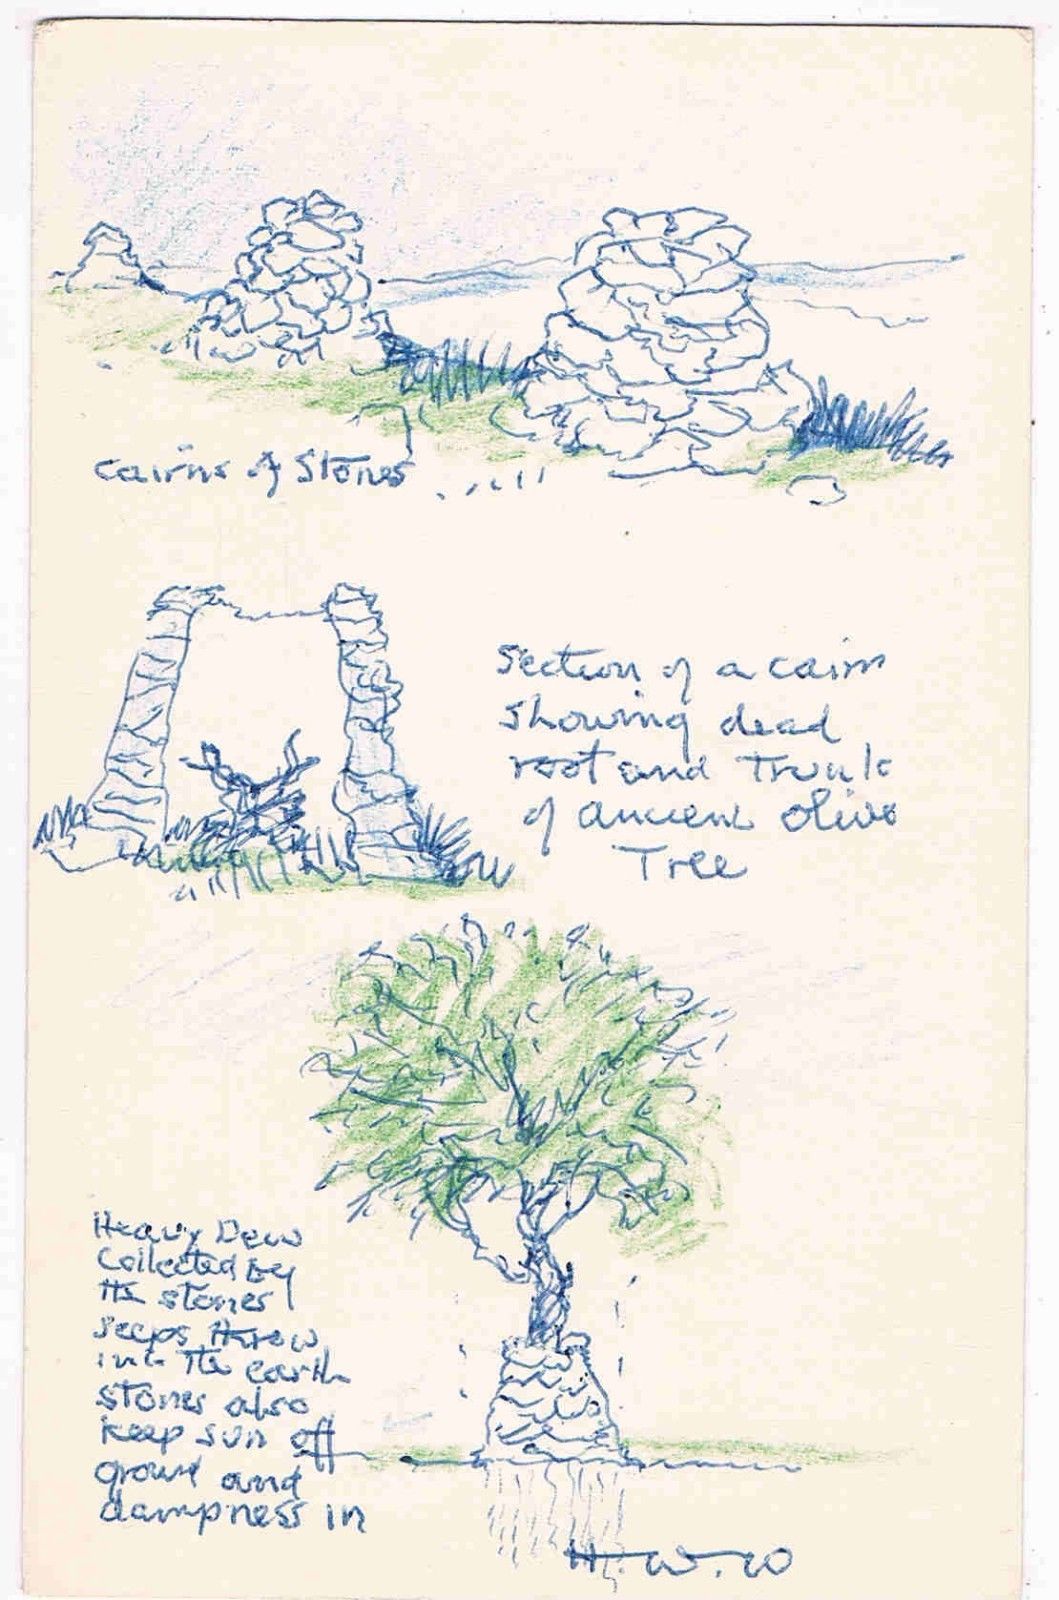 cairns of Stones
Section of a cairn
Showing dead
root and Trunk
of ancient olive
Tree
Heavy Dew
Collected By
the stones
seeps throw
into the earth
stones also
keep sun off
ground and
dampness in
H.W.W